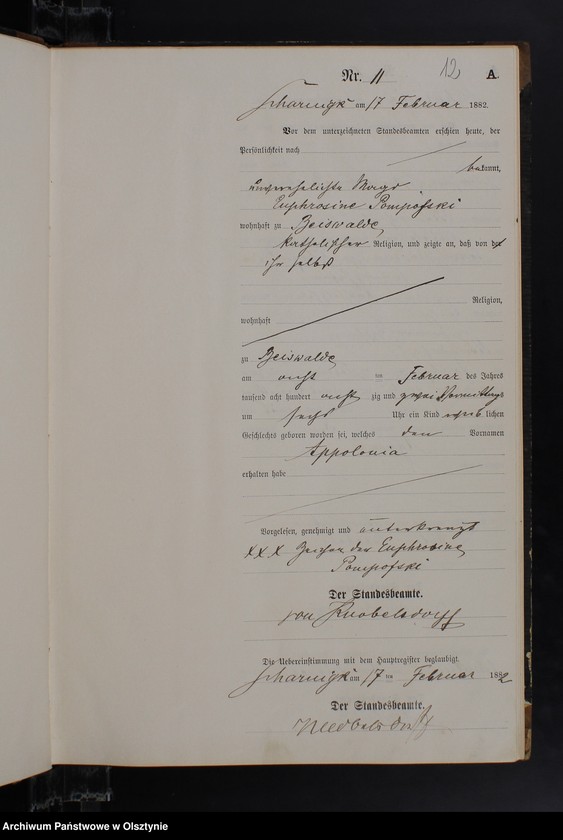 12
Nr. 11
A.
Scharnigk am 17 Februar 1882.
Vor dem unterzeichneten Standesbeamten erschien heute, der
Persönlichkeit nach
bekannt,
unverehelichte Magd
Euphrosine Pompofski
wohnhaft zu Beiswalde
katholischer Religion, und zeigte an, daß von der
ihr selbst
Religion,
wohnhaft
zu Beiswalde
am acht ten Februar des Jahres
tausend acht hundert acht zig und zwei Vormittags
um sechs Uhr ein Kind weiblichen
Geschlechts geboren worden sei, welches den Vornamen
Appolonia
erhalten habe
Vorgelesen, genehmigt und unterkreuzt
XXX Zeichen der Euphrosine
Pompofski
Der Standesbeamte.
von Knobelsdorff
Die Uebereinstimmung mit dem Hauptregister beglaubigt.
Scharnigk am 17 ten Februar 1882
Der Standesbeamte.
Archiwum Państwowe w Olsztynie